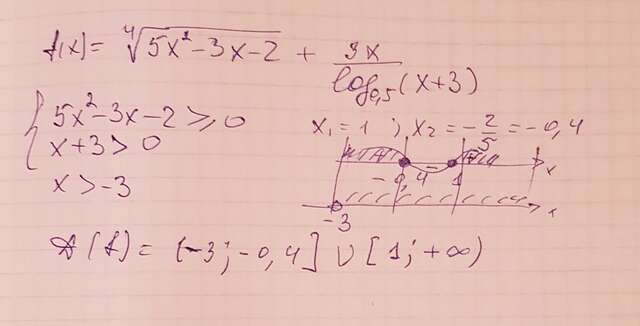 f(x) = ∜(5x² - 3x - 2) + 3x / log₀,₅(x+3)
{ 5x² - 3x - 2 ≥ 0
x + 3 > 0
x > -3
x₁ = 1 ; x₂ = -2/5 = -0,4
+ - +
-0,4 1 x
-3 x
D(f) = (-3; -0,4] ∪ [1; +∞)